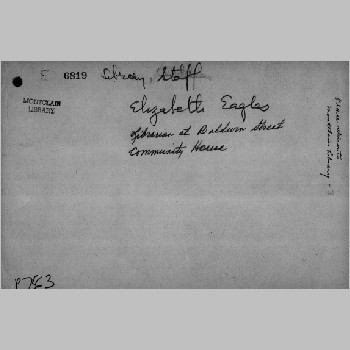 E 6819 Library, Staff
MONTCLAIR
LIBRARY
Elizabeth Eagles
Librarian at Baldwin Street
Community House
Montclair Library
P783